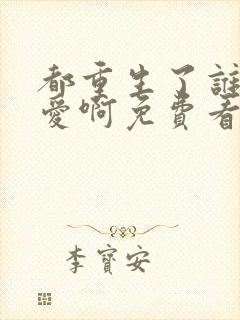 都重生了誰
愛啊免費看
李寶安